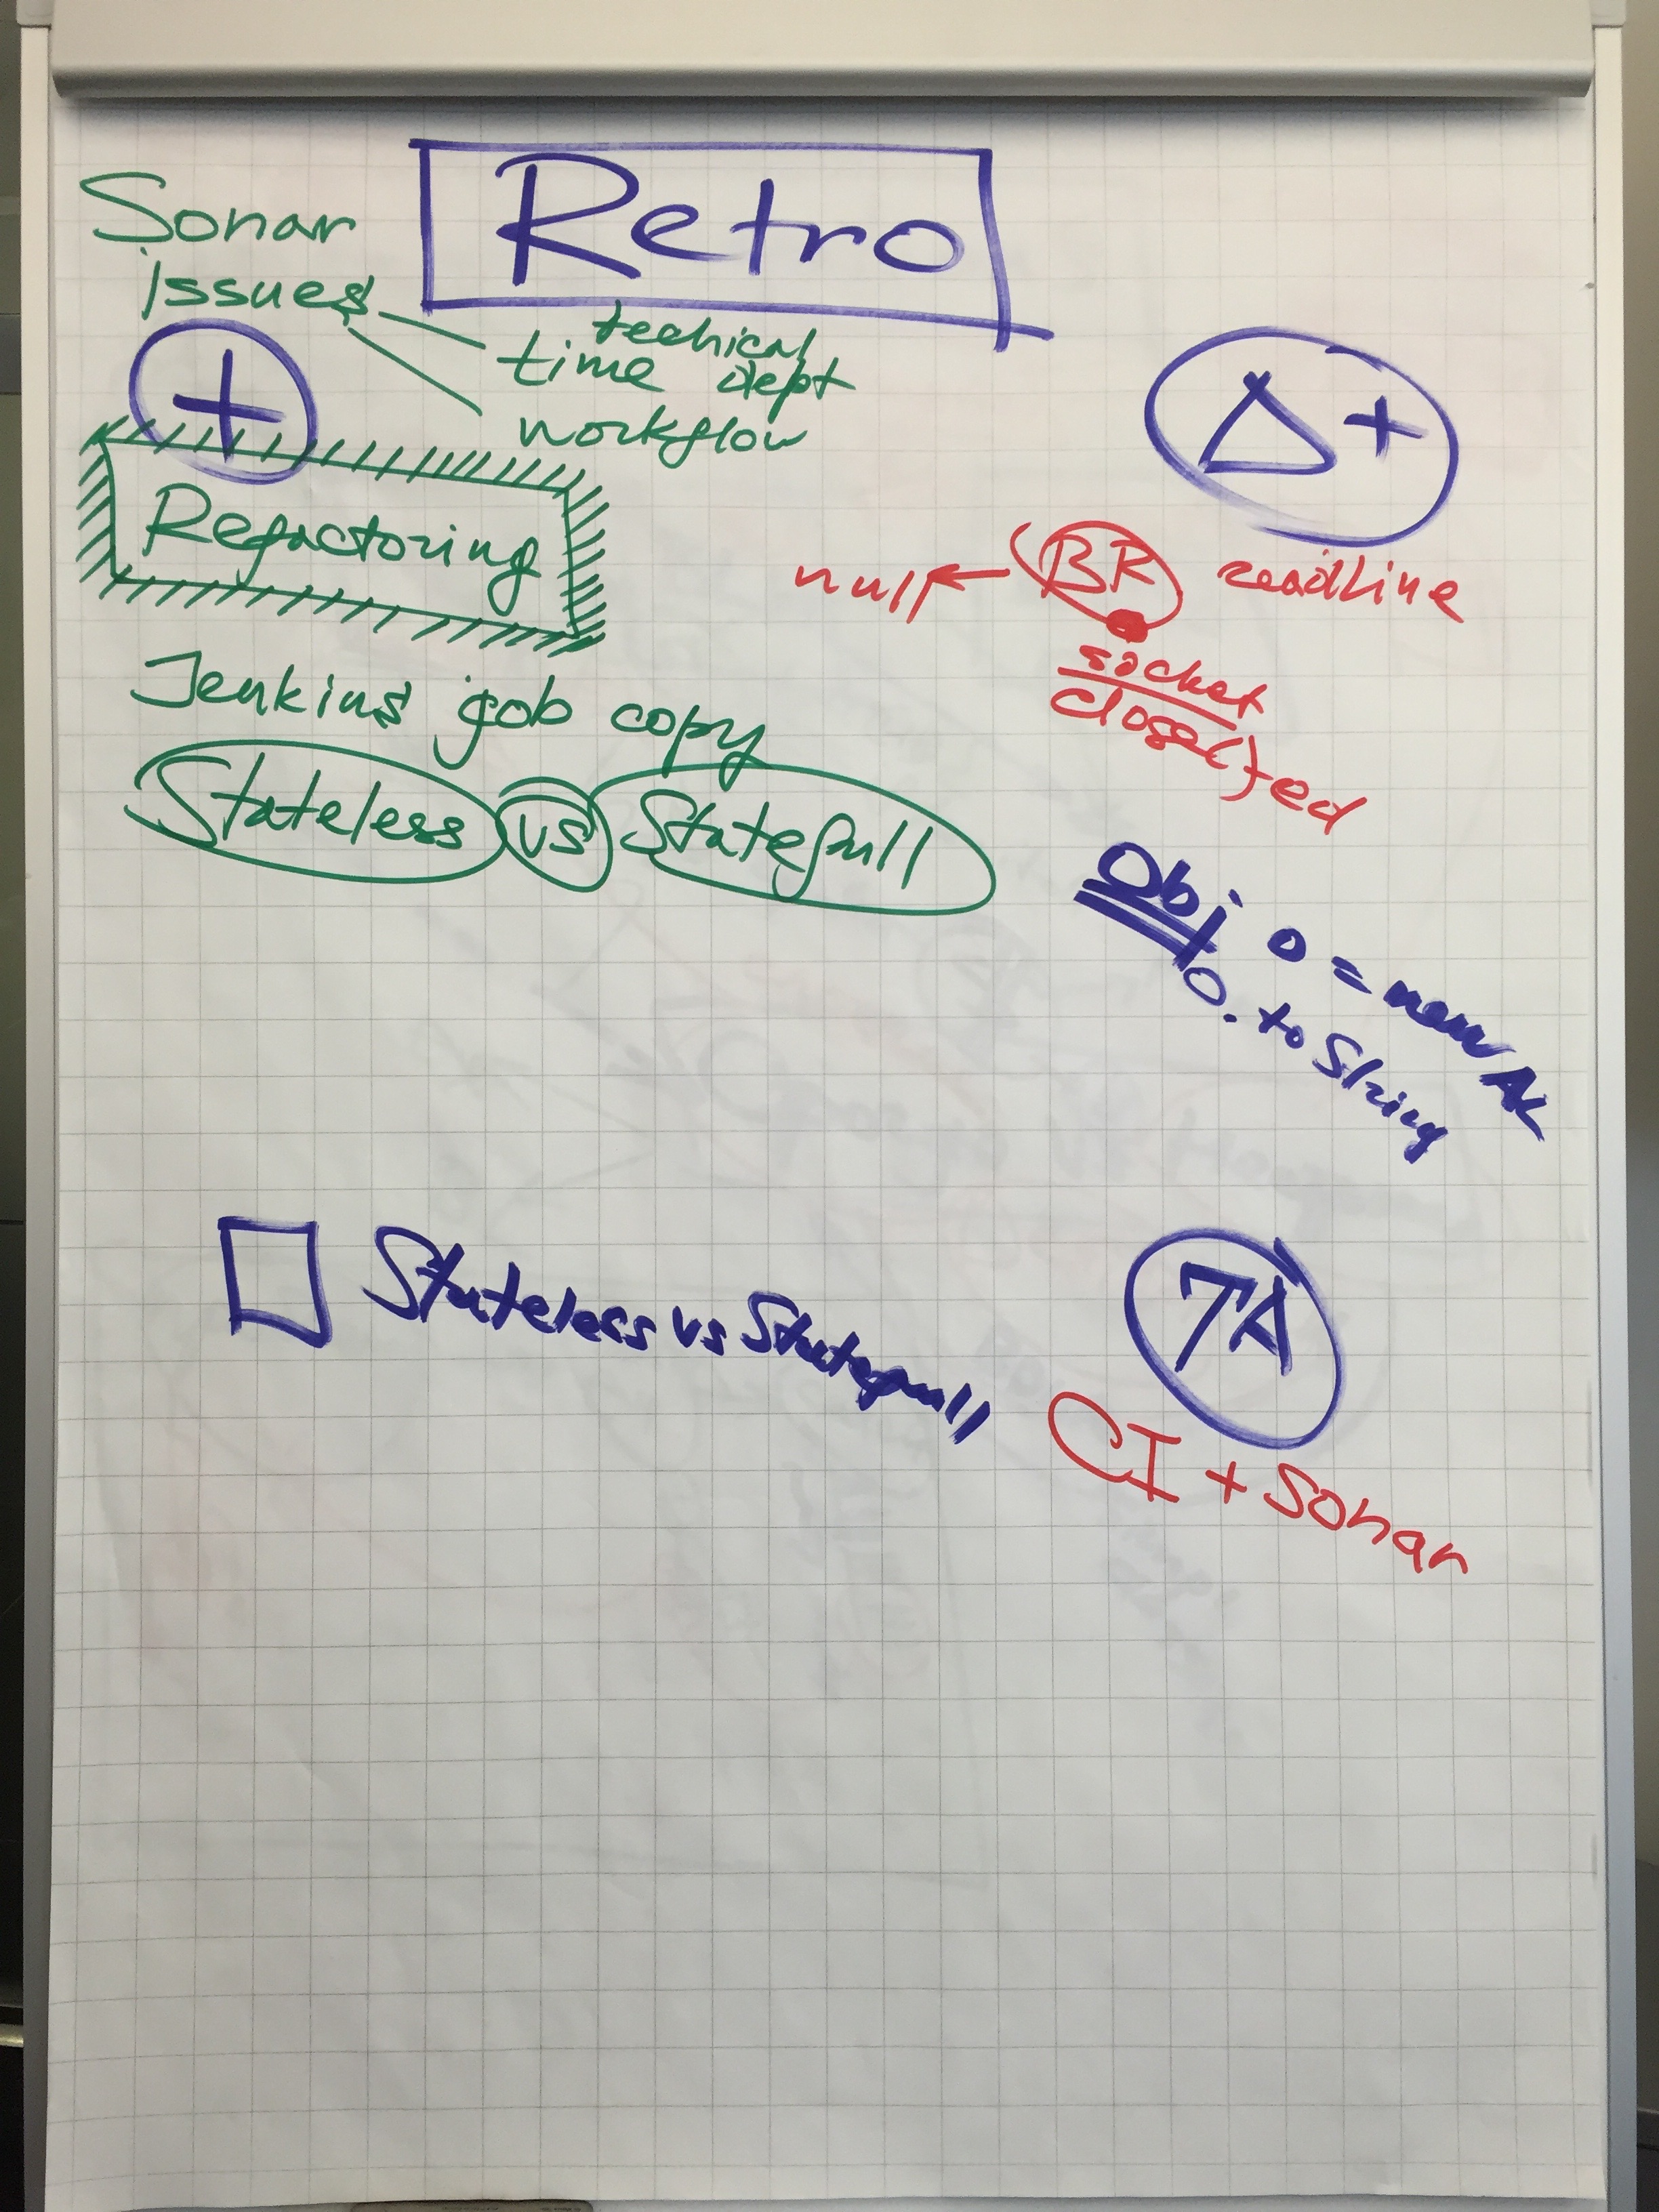 Retro
Sonar
Issues
technical
time dept
workflow
+
Refactoring
Jenkins job copy
Stateless vs Statefull
Δ+
null ← BR readline
socket
close() + ex
Obj. 0 = new A
0. to String
Stateless vs Statefull
CI + Sonar